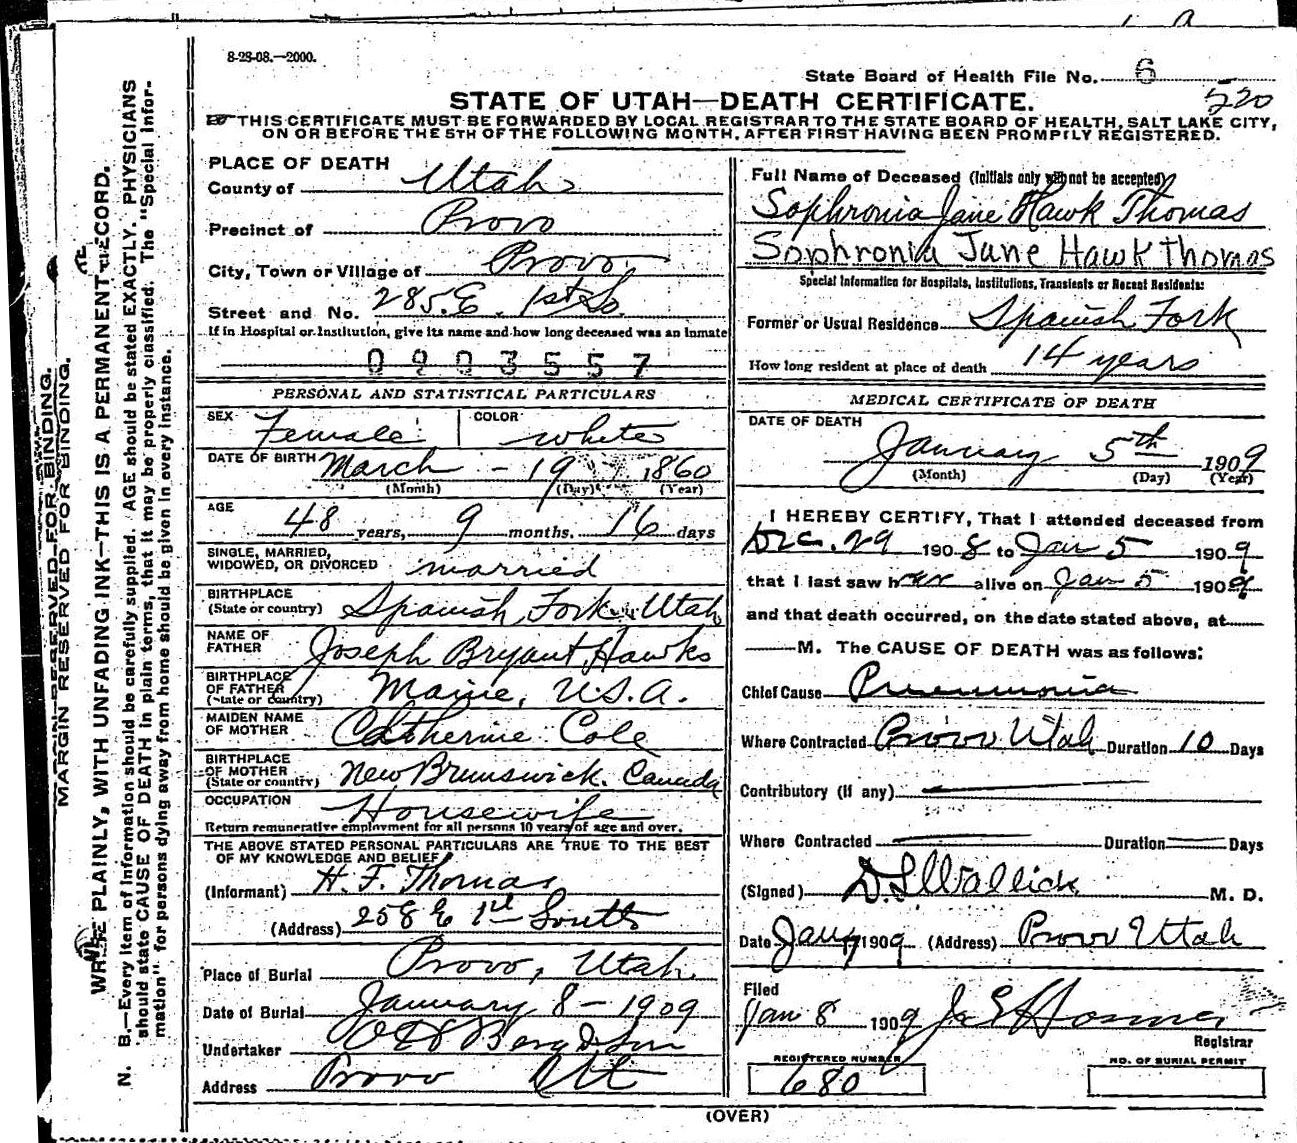 8-28-08.—2000.
State Board of Health File No. 6
520
STATE OF UTAH—DEATH CERTIFICATE.
THIS CERTIFICATE MUST BE FORWARDED BY LOCAL REGISTRAR TO THE STATE BOARD OF HEALTH, SALT LAKE CITY,
ON OR BEFORE THE 5TH OF THE FOLLOWING MONTH, AFTER FIRST HAVING BEEN PROMPTLY REGISTERED.
PLACE OF DEATH
County of Utah
Precinct of Provo
City, Town or Village of Provo
Street and No. 285 E. 1st So.
If in Hospital or Institution, give its name and how long deceased was an inmate
0903557
PERSONAL AND STATISTICAL PARTICULARS
SEX Female COLOR white
DATE OF BIRTH March - 19 1860
(Month) (Day) (Year)
AGE
48 years, 9 months. 16 days
SINGLE, MARRIED,
WIDOWED, OR DIVORCED married
BIRTHPLACE
(State or country) Spanish Fork Utah
NAME OF
FATHER Joseph Bryant Hawks
BIRTHPLACE
OF FATHER
(State or country) Maine, U.S.A.
MAIDEN NAME
OF MOTHER Catherine Cole
BIRTHPLACE
OF MOTHER
(State or country) New Brunswick. Canada
OCCUPATION Housewife
Return remunerative employment for all persons 10 years of age and over.
THE ABOVE STATED PERSONAL PARTICULARS ARE TRUE TO THE BEST
OF MY KNOWLEDGE AND BELIEF
(Informant) H. F. Thomas
(Address) 258 E 1st South
Place of Burial Provo, Utah.
Date of Burial January 8 - 1909
Undertaker
Address Provo Ut
Full Name of Deceased (Initials only will not be accepted)
Sophronia Jane Hawk Thomas
Sophronia Jane Hawk Thomas
Special Information for Hospitals, Institutions, Transients or Recent Residents:
Former or Usual Residence Spanish Fork
How long resident at place of death 14 years
MEDICAL CERTIFICATE OF DEATH
DATE OF DEATH
January 5th 1909
(Month) (Day) (Year)
I HEREBY CERTIFY, That I attended deceased from
Dec. 29 1908 to Jan 5 1909
that I last saw her alive on Jan 5 1909
and that death occurred, on the date stated above, at
M. The CAUSE OF DEATH was as follows:
Chief Cause Pneumonia
Where Contracted Provo Utah Duration 10 Days
Contributory (if any)
Where Contracted Duration Days
(Signed) M. D.
Date Jan 1909 (Address) Provo Utah
Filed
Jan 8 1909
Registrar
REGISTERED NUMBER
680
NO. OF BURIAL PERMIT
(OVER)
MARGIN RESERVED FOR BINDING.
MARGIN RESERVED FOR BINDING.
WRITE PLAINLY, WITH UNFADING INK—THIS IS A PERMANENT RECORD.
N. B.—Every item of information should be carefully supplied. AGE should be stated EXACTLY. PHYSICIANS
should state CAUSE OF DEATH in plain terms, that it may be properly classified. The "Special Infor-
mation" for persons dying away from home should be given in every instance.